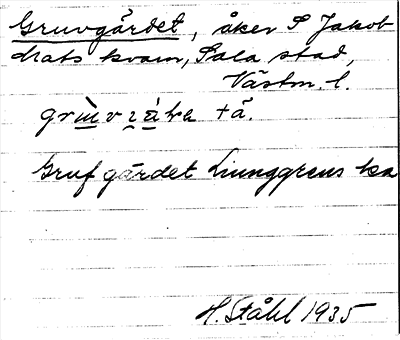 Gruvgärdet, åker S Jakob
Mats kvarn, Sala stad,
Västm. l.
grɯ̀vɪá̤ʈɐ tä.
Grufgärdet Ljunggrens ka
H. Ståhl 1935